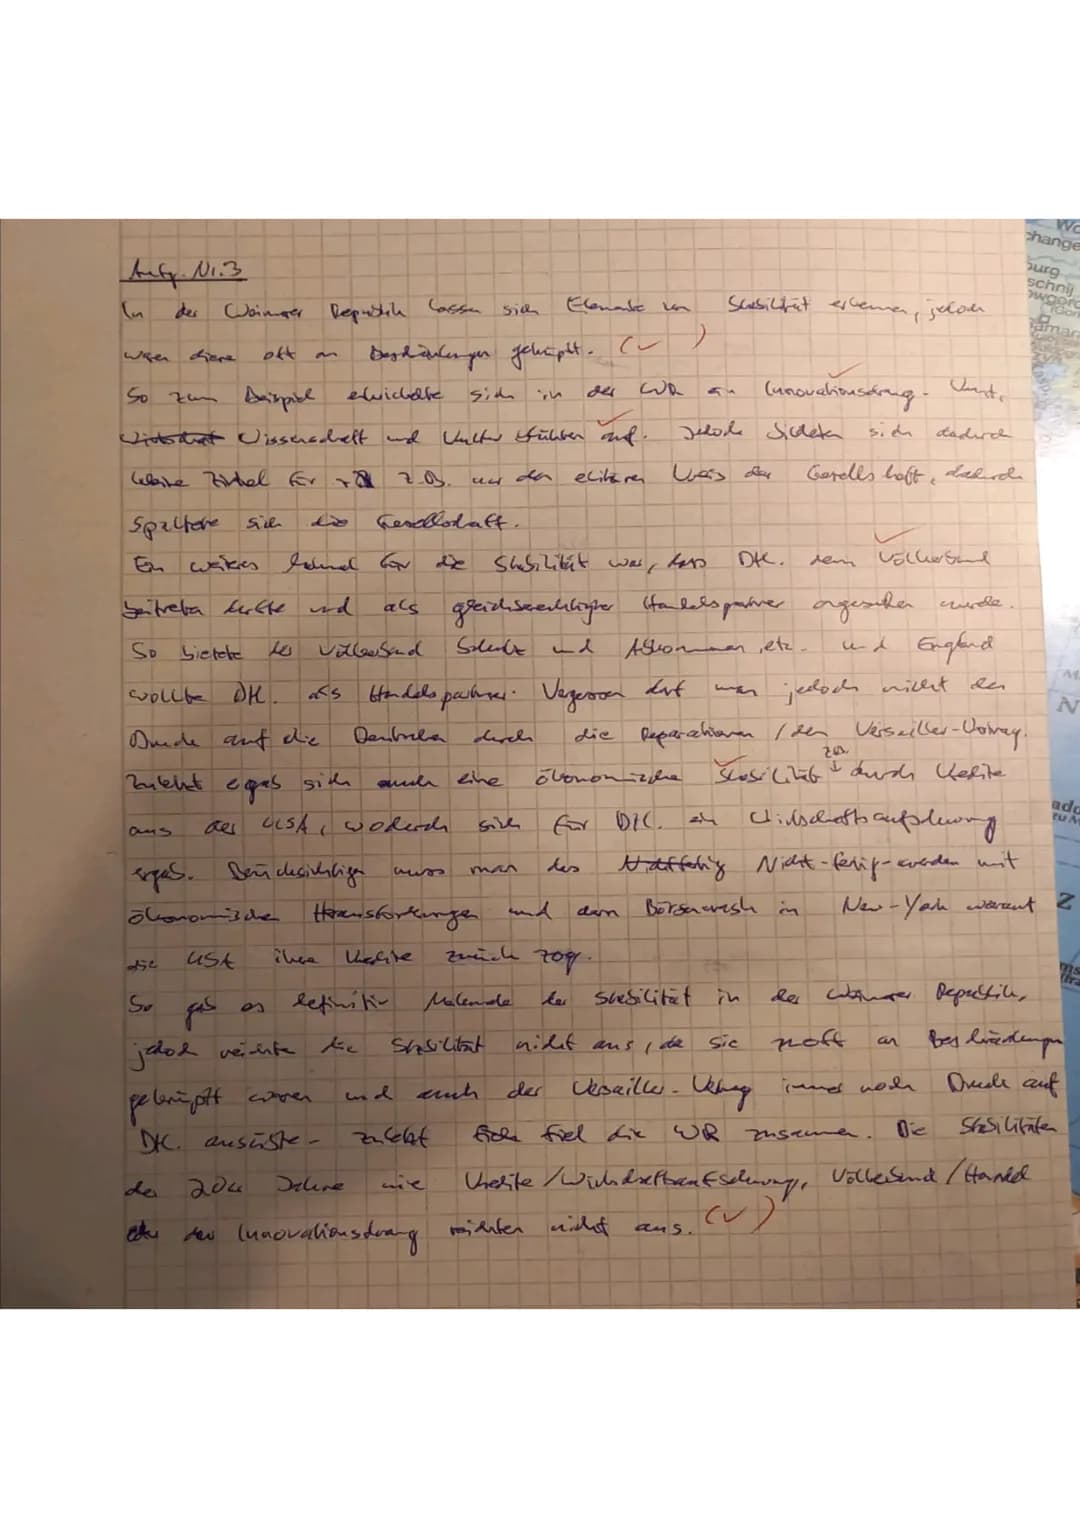 Aufg. Nr. 3
In der Weimarer Republik lassen sich Elemente von Stabilität erkennen, jedoch
waren diese oft an Beschränkungen geknüpft. (✓)
So zum Beispiel entwickelte sich in der WR ein Innovationsdrang. Kunst,
Wissenschaft und Kultur blühten auf. Jedoch bildeten sich dadurch
kleine Zirkel für z.B. nur den elitären Kreis der Gesellschaft, dadurch
spaltete sich die Gesellschaft.
Ein weiteres Merkmal für die Stabilität war, dass DtL. dem Völkerbund
beitreten durfte und als gleichberechtigter Handelspartner angesehen wurde.
So bietete der Völkerbund Schutz und Abkommen, etc. und England
wollte DtL. als Handelspartner. Vergessen darf man jedoch nicht den
Druck auf die Deutschen durch die Reparationen / den Versailler-Vertrag.
Zuletzt ergab sich auch eine ökonomische Stabilität z.B. durch Kredite
aus der USA, wodurch sich für DtL. ein Wirtschaftsaufschwung
ergab. Berücksichtigen muss man das Nicht-fertig-werden mit
ökonomischen Herausforderungen und dem Börsencrash in New-York
die USA ihre Kredite zurück zog.
So gab es definitiv Merkmale der Stabilität in der Weimarer Republik,
jedoch reichte die Stabilität nicht aus, da sie oft an Beschränkungen
geknüpft waren und auch der Versailler-Vertrag immer noch Druck auf
DtL. ausübte - zuletzt fiel die WR zusammen. Die Stabilitäten
der 20er Jahre wie Kredite / Wirtschaftsaufschwung, Völkerbund / Handel
der Innovationsdrang reichten nicht aus. (✓)
Wo
change
burg
schnij
N
Z